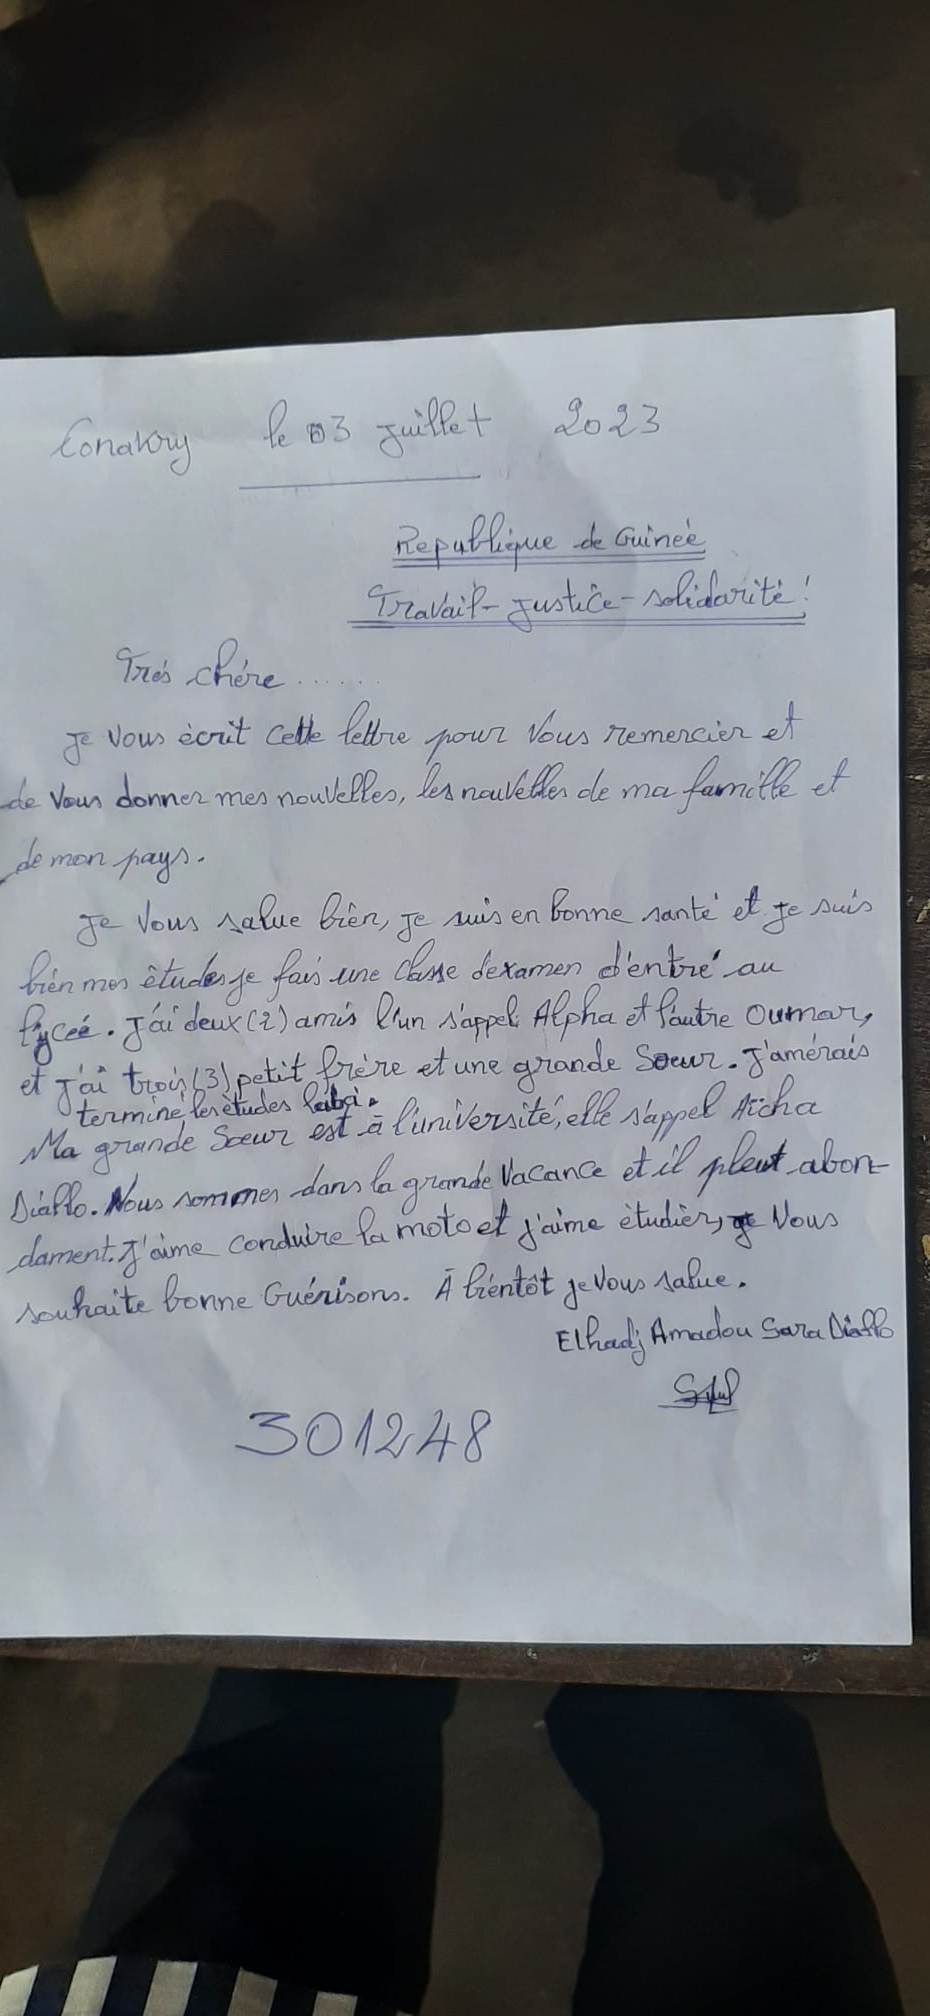 Conakry le 03 juillet 2023
Republique de Guineé
Travail - justice - solidarité !
Trés chére ........
je vous écrit cette lettre pour vous remercier et
de vous donner mes nouvelles, les nouvelles de ma famille et
de mon pays.
je vous salue bien, je suis en bonne santé et je suis
bien mes études je fais une classe d'examen d'entré au
lyceé. J'ai deux (2) amis l'un s'appel Alpha et l'autre Oumar,
et j'ai trois (3) petit frère et une grande Soeur. J'amérais
terminé les études
Ma grande Soeur est à l'université, elle s'appel Aicha
Diallo. Nous sommes dans la grande vacance et il pleut abon-
dament. J'aime conduire la moto et j'aime étudier, je vous
souhaite bonne Guérisons. À bientôt je vous salue.
Elhadj Amadou Sara Diallo
301248